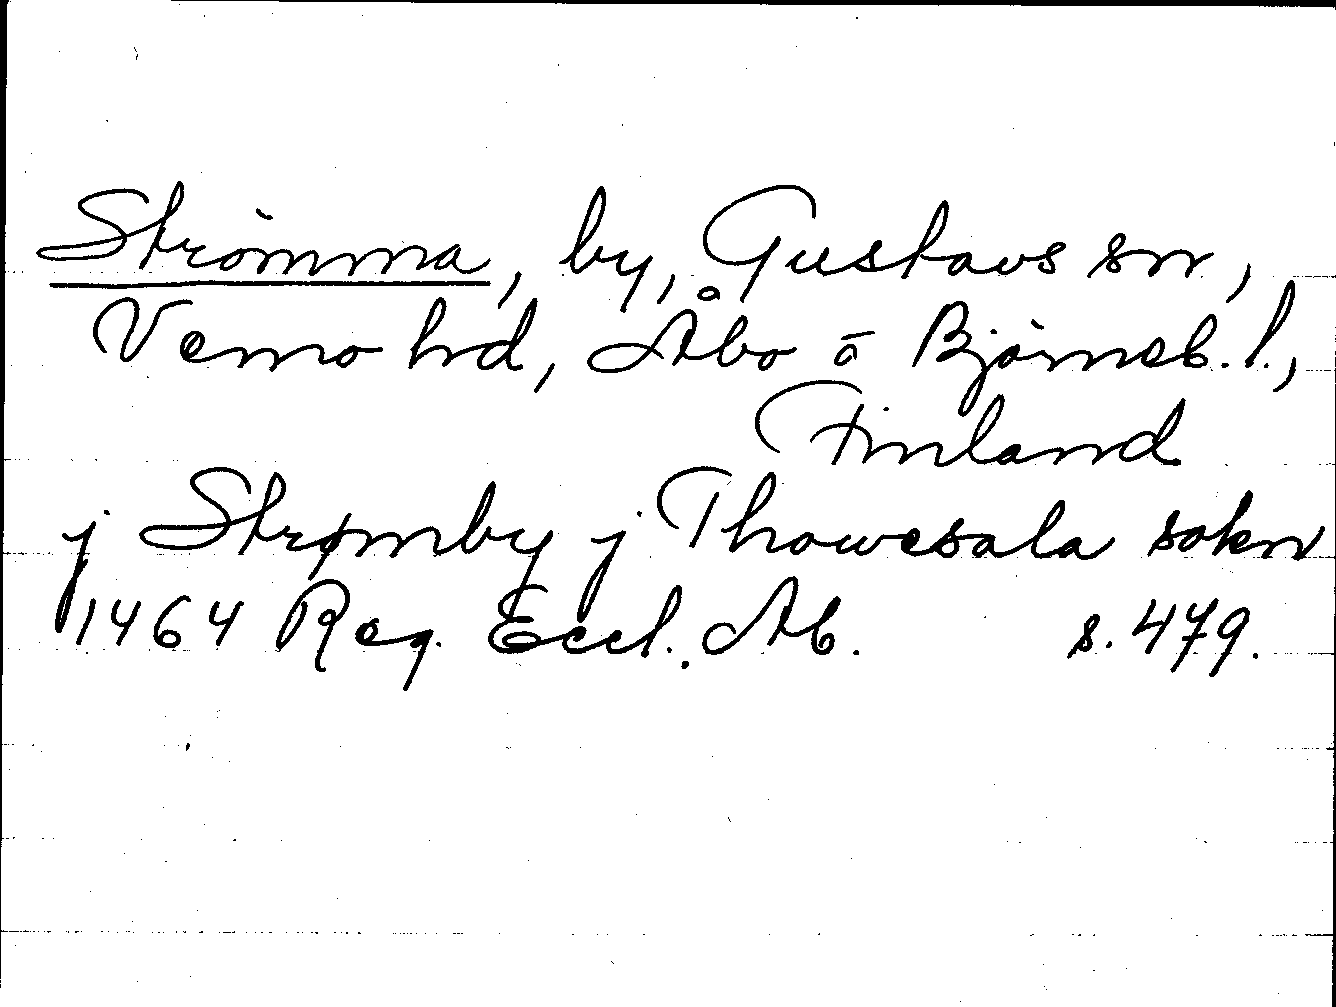 Strömma, by, Gustavs sn,
Vemo hd, Åbo o Björneb. l.,
Finland
j Strømby j Thowesala sokn
1464 Reg. Eccl. Ab. s. 479.